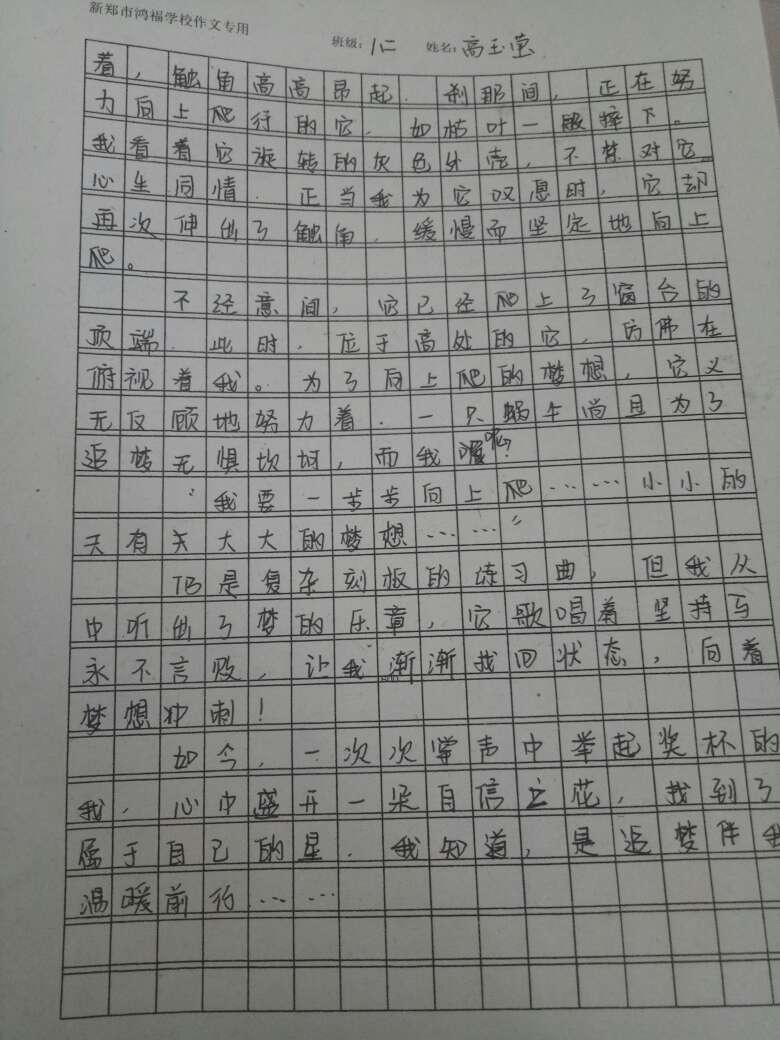 新郑市鸿福学校作文专用
班级: 1仁 姓名: 高玉莹
着，触角高高昂起．刹那间，正在努
力向上爬行的它．如枯叶一般摔下。
我看着它旋转的灰色外壳，不禁对它
心生同情．正当我为它叹惠时，它却
再次伸出了触角．缓慢而坚定地向上
爬。
不经意间，它已经爬上了窗台的
顶端．此时．位于高处的它，仿佛在
俯视着我。为了向上爬的梦想，它义
无反顾地努力着．一只蜗牛尚且为了
追梦无惧坎坷，而我呢?
我要一步步向上爬……小小的
天有关大大的梦想……”
仍是复杂刻板的练习曲，但我从
中听出了梦的乐章，它歌唱着坚持与
永不言败，让我渐渐找回状态，向着
梦想冲刺！
如今．一次次掌声中举起奖杯的
我．心中盛开一朵自信之花，找到了
属于自己的星．我知道，是追梦伴我
温暖前行……